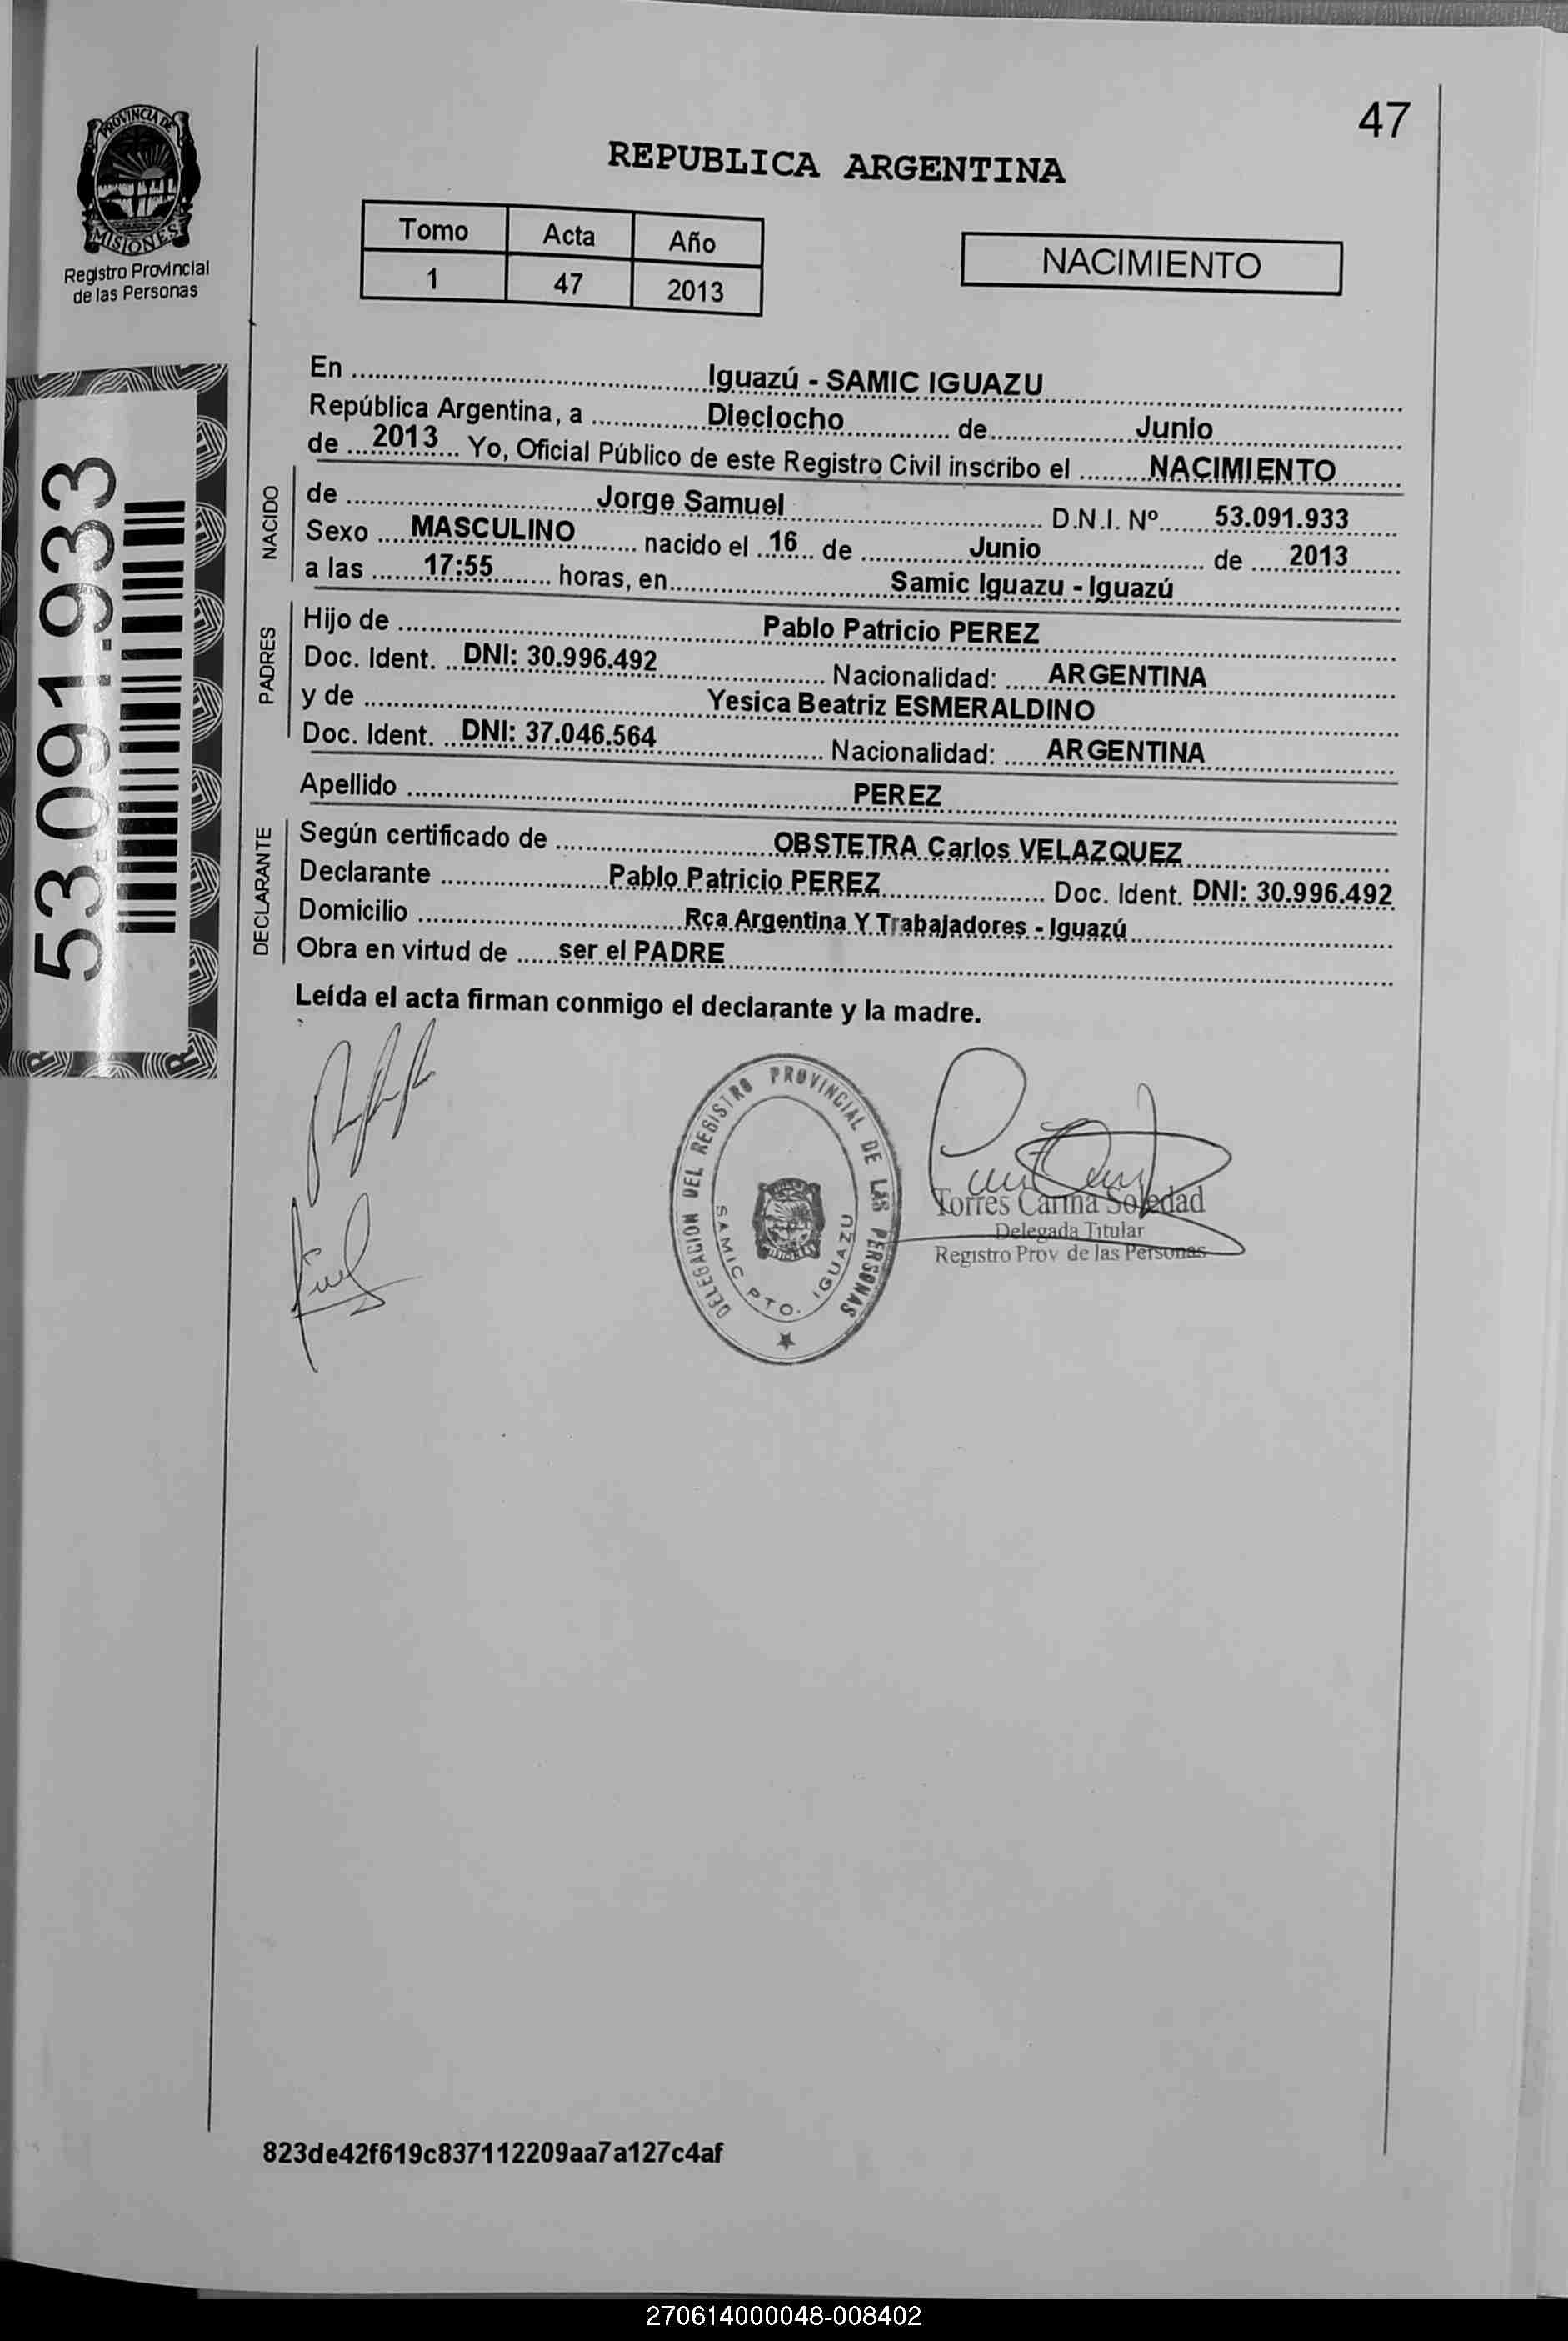 47
REPUBLICA ARGENTINA
PROVINCIA DE
MISIONES
Registro Provincial
de las Personas
Tomo Acta Año
1 47 2013
NACIMIENTO
53.091.933
En Iguazú - SAMIC IGUAZU
República Argentina, a Dieciocho de Junio
de 2013 Yo, Oficial Público de este Registro Civil inscribo el NACIMIENTO
NACIDO
de Jorge Samuel D.N.I. Nº 53.091.933
Sexo MASCULINO nacido el 16 de Junio de 2013
a las 17:55 horas, en Samic Iguazu - Iguazú
PADRES
Hijo de Pablo Patricio PEREZ
Doc. Ident. DNI: 30.996.492 Nacionalidad: ARGENTINA
y de Yesica Beatriz ESMERALDINO
Doc. Ident. DNI: 37.046.564 Nacionalidad: ARGENTINA
Apellido PEREZ
DECLARANTE
Según certificado de OBSTETRA Carlos VELAZQUEZ
Declarante Pablo Patricio PEREZ Doc. Ident. DNI: 30.996.492
Domicilio Rca Argentina Y Trabajadores - Iguazú
Obra en virtud de ser el PADRE
Leída el acta firman conmigo el declarante y la madre.
DELEGACION DEL REGISTRO PROVINCIAL DE LAS PERSONAS
SAMIC PTO. IGUAZU
Torres Carina Soledad
Delegada Titular
Registro Prov de las Personas
823de42f619c837112209aa7a127c4af
270614000048-008402